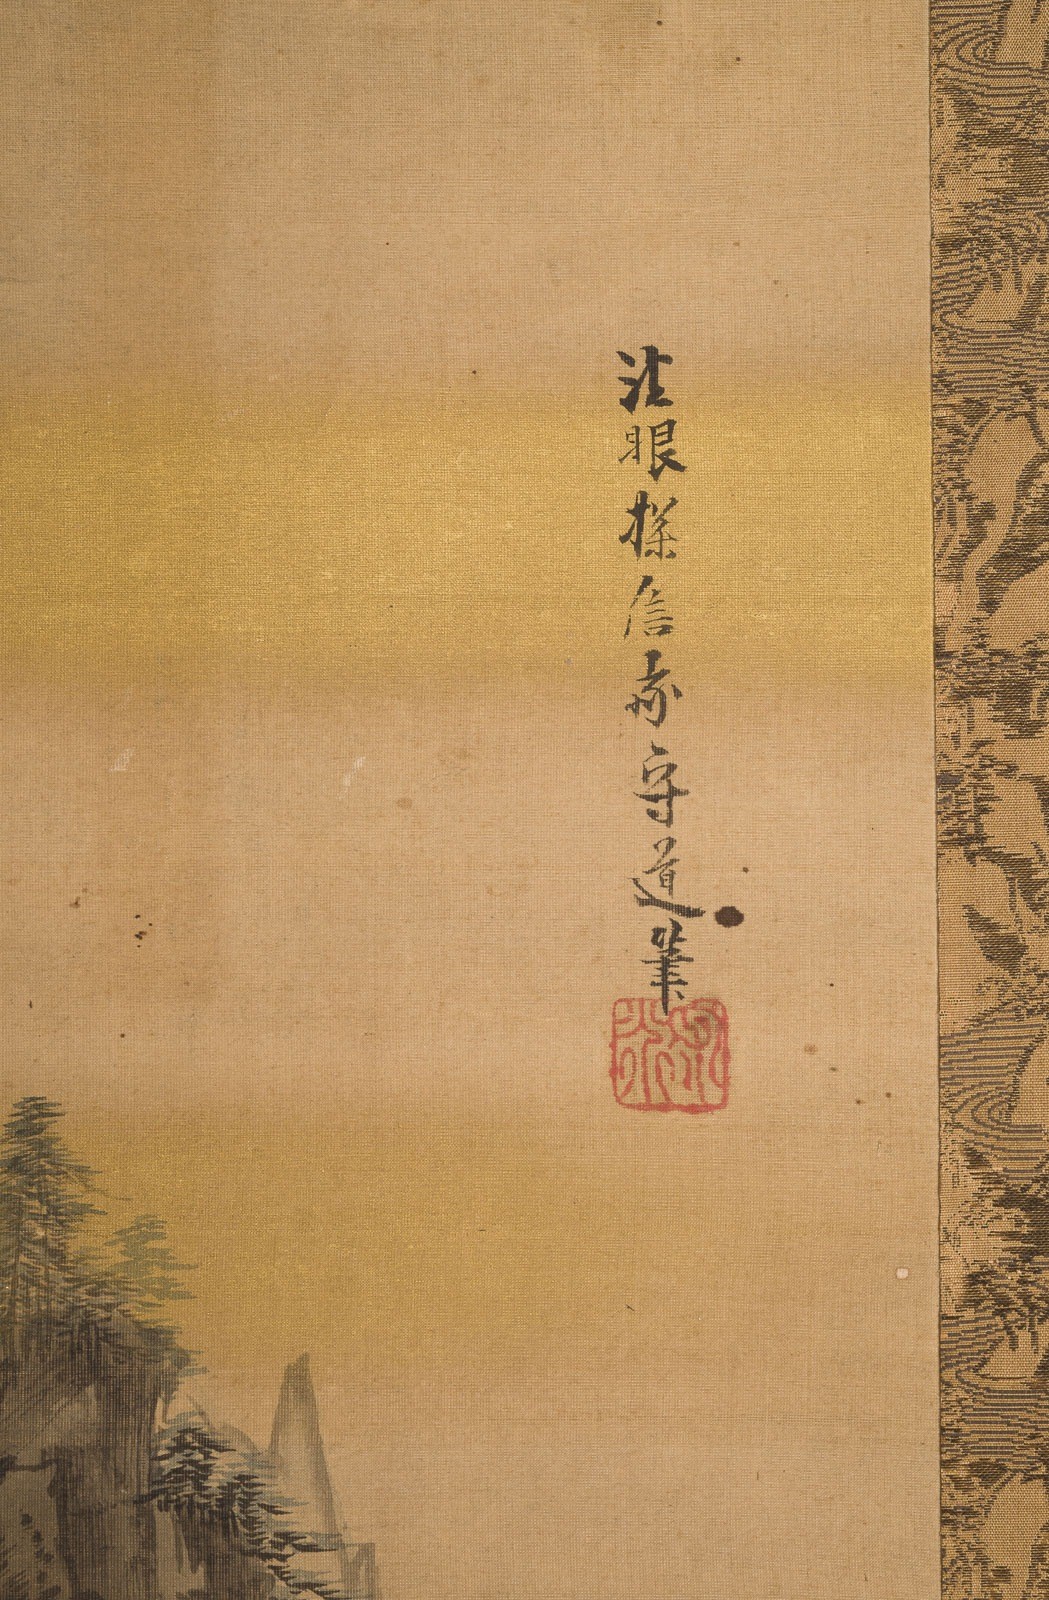 法眼探信斎守道筆